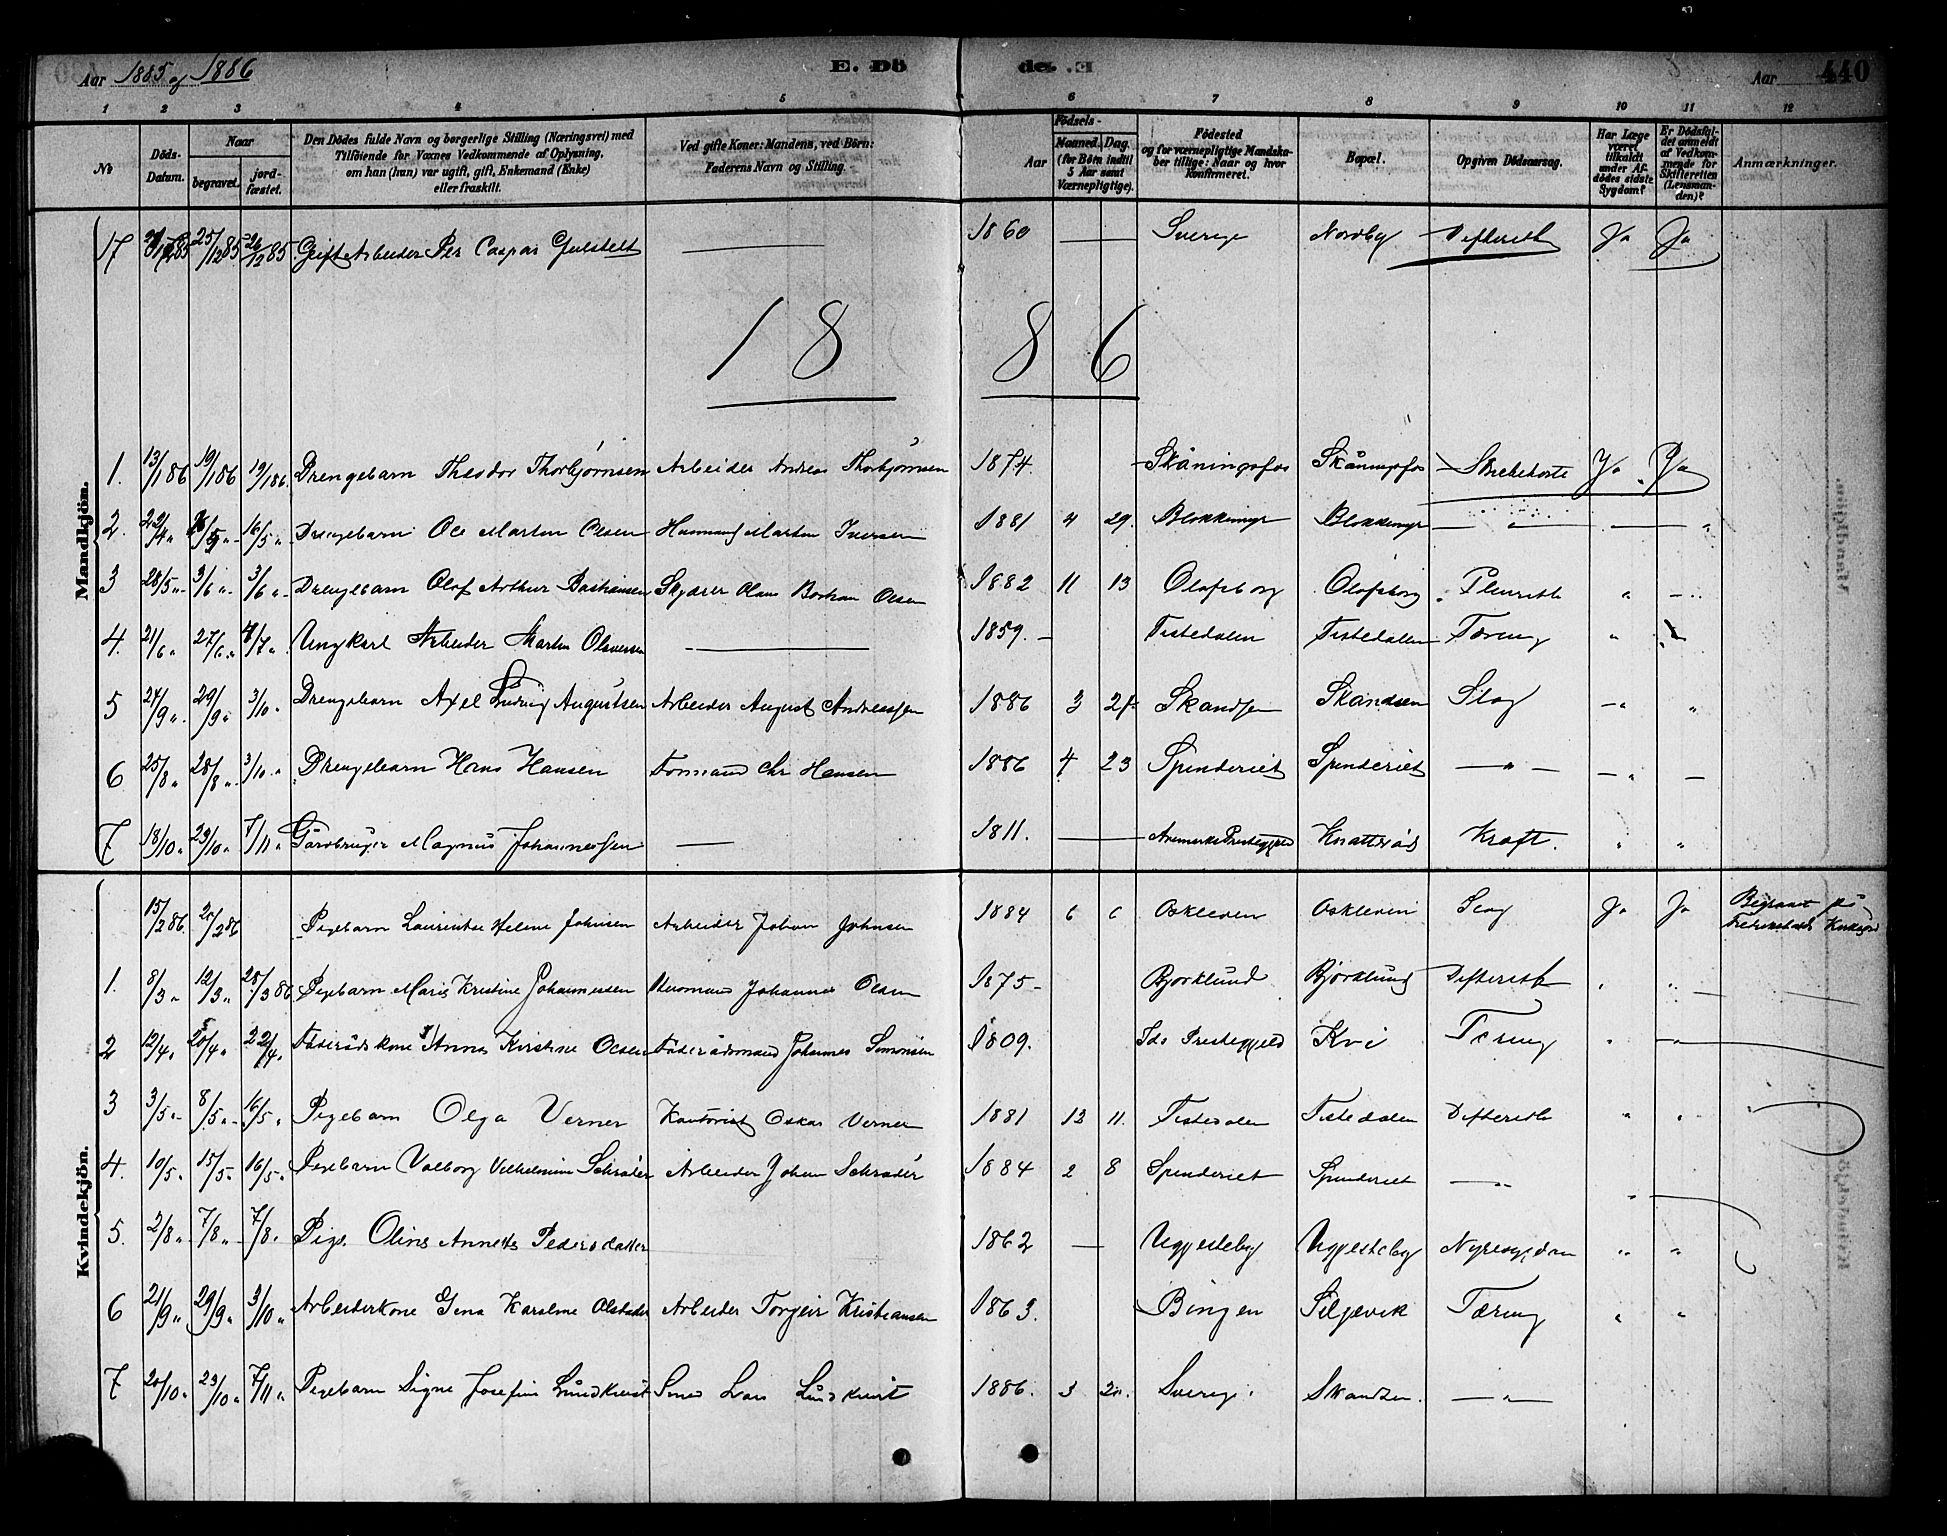 Aar 1885 og 1886
E. Dö
de.
Aar 440
1 2 3 4 5 6 7 8 9 10 11 12
No
Döds-Datum.
Naar
begravet.
jord-fæstet.
Den Dödes fulde Navn og borgerlige Stilling (Næringsvei) med
Tilföiende for Voxnes Vedkommende af Oplysning,
om han (hun) var ugift, gift, Enkemand (Enke)
eller fraskilt.
Ved gifte Koner: Mandens, ved Börn:
Faderens Navn og Stilling.
Födsels-
Aar
Maaned. Dag.
(for Börn indtil
5 Aar samt
Værnepligtige).
Födested
og for værnepligtige Mandska-
ber tillige: Naar og hvor
konfirmeret.
Bopæl.
Opgiven Dödsaarsag.
Har Læge
været
tilkaldt
under Af-
dödes sidste
Sygdom?
Er Dödsfal-
det anmeldt
af Vedkom-
mende for
Skifteretten
(Lensman-
den)?
Anmærkninger.
Mandkjön.
17 25/12 85 26/12 85 Gift Arbeider Per Caspar — 1860 — Sverige Nordby Difterith Ja Ja
1886
1. 13/1 86 19/1 86 19/1 86. Drengebarn Theodor Thorbjørnsen Arbeider Andreas Thorbjørnsen 1874. Skåningsfos Skåningsfos Strubehoste Ja Ja
2. 22/4 " 16/5 " Drengebarn Ole Martin Olsen Husmand Martin Iversen 1881 4 29. Blokkemyr Blokkemyr — " — "
3 28/5 " 3/6 " 3/6 " Drengebarn Olaf Arthur Bastiansen Olsen 1882 11 13 Olafsborg Olafsborg Pleurith "
4. 21/6 " 27/6 " Ungkarl Arbeider Martin Olavesen — 1859. — Tistedalen Tistedalen Tæring "
5 24/9 " 29/9 " 3/10 " Drengebarn Axel Ludvig Augustsen Arbeider August Andreassen 1886 3 Skandsen Skandsen Slag " "
6 25/8 " 28/8 " 3/10 " Drengebarn Hans Hansen Formand Chr Hansen 1886 4 23 Spinderiet Spinderiet — " — " —
7 18/10 " 23/10 " 7/11 " Gårdbruger Magnus Johannessen — 1811. — Aremarks Prestegjeld Knatterød Kræft. " "
Kvindekjön.
15/2 86. 20/2 86 Pigebarn Laurentse Helene Johnsen Arbeider Johan Johnsen 1884 6 6 Askleven Askleven Slag Ja Ja Begravet på Fredrikshalds Kirkegård
1. 8/3 " 12/3 " 28/3 86 Pigebarn Maria Kristine Johannesden Johannes Olsen 1875 – Bjørklund Bjørklund Difterith " "
2 12/4 " 20/4 " 22/4 " Føderådskone Anna Kirstine Olsen Føderådsmand Johannes Simonsen 1809. Ids Prestegjeld Kvi Tæring " "
3 3/5 " 8/5 " 16/5 " Pigebarn Olga Verner Kontorist Oskar Verner 1881 12 11. Tistedalen Tistedalen Difterith " "
4. 10/5 " 15/5 " 16/5 " Pigebarn Valborg Vilhelmine Schrøder Arbeider Johan Schrøder 1884 2 8 Spinderiet Spinderiet — " "
5. 2/8 " 7/8 " 7/8 " Pige Oline Annette Pedersdatter 1862 — Vigjesteby Vigjesteby Nyresygdom " "
6 21/9 " 29/9 " 3/10 " Arbeiderkone Gina Karoline Olsdatter Arbeider Torgeir Kristiansen 1863. Bingen Siljevik Tæring " "
7 20/10 " 23/10 " 7/11 " Pigebarn Signe Josefine Lundkvist Smed Lars Lundkvist 1886. 3 Sverige. Skandsen. — " —